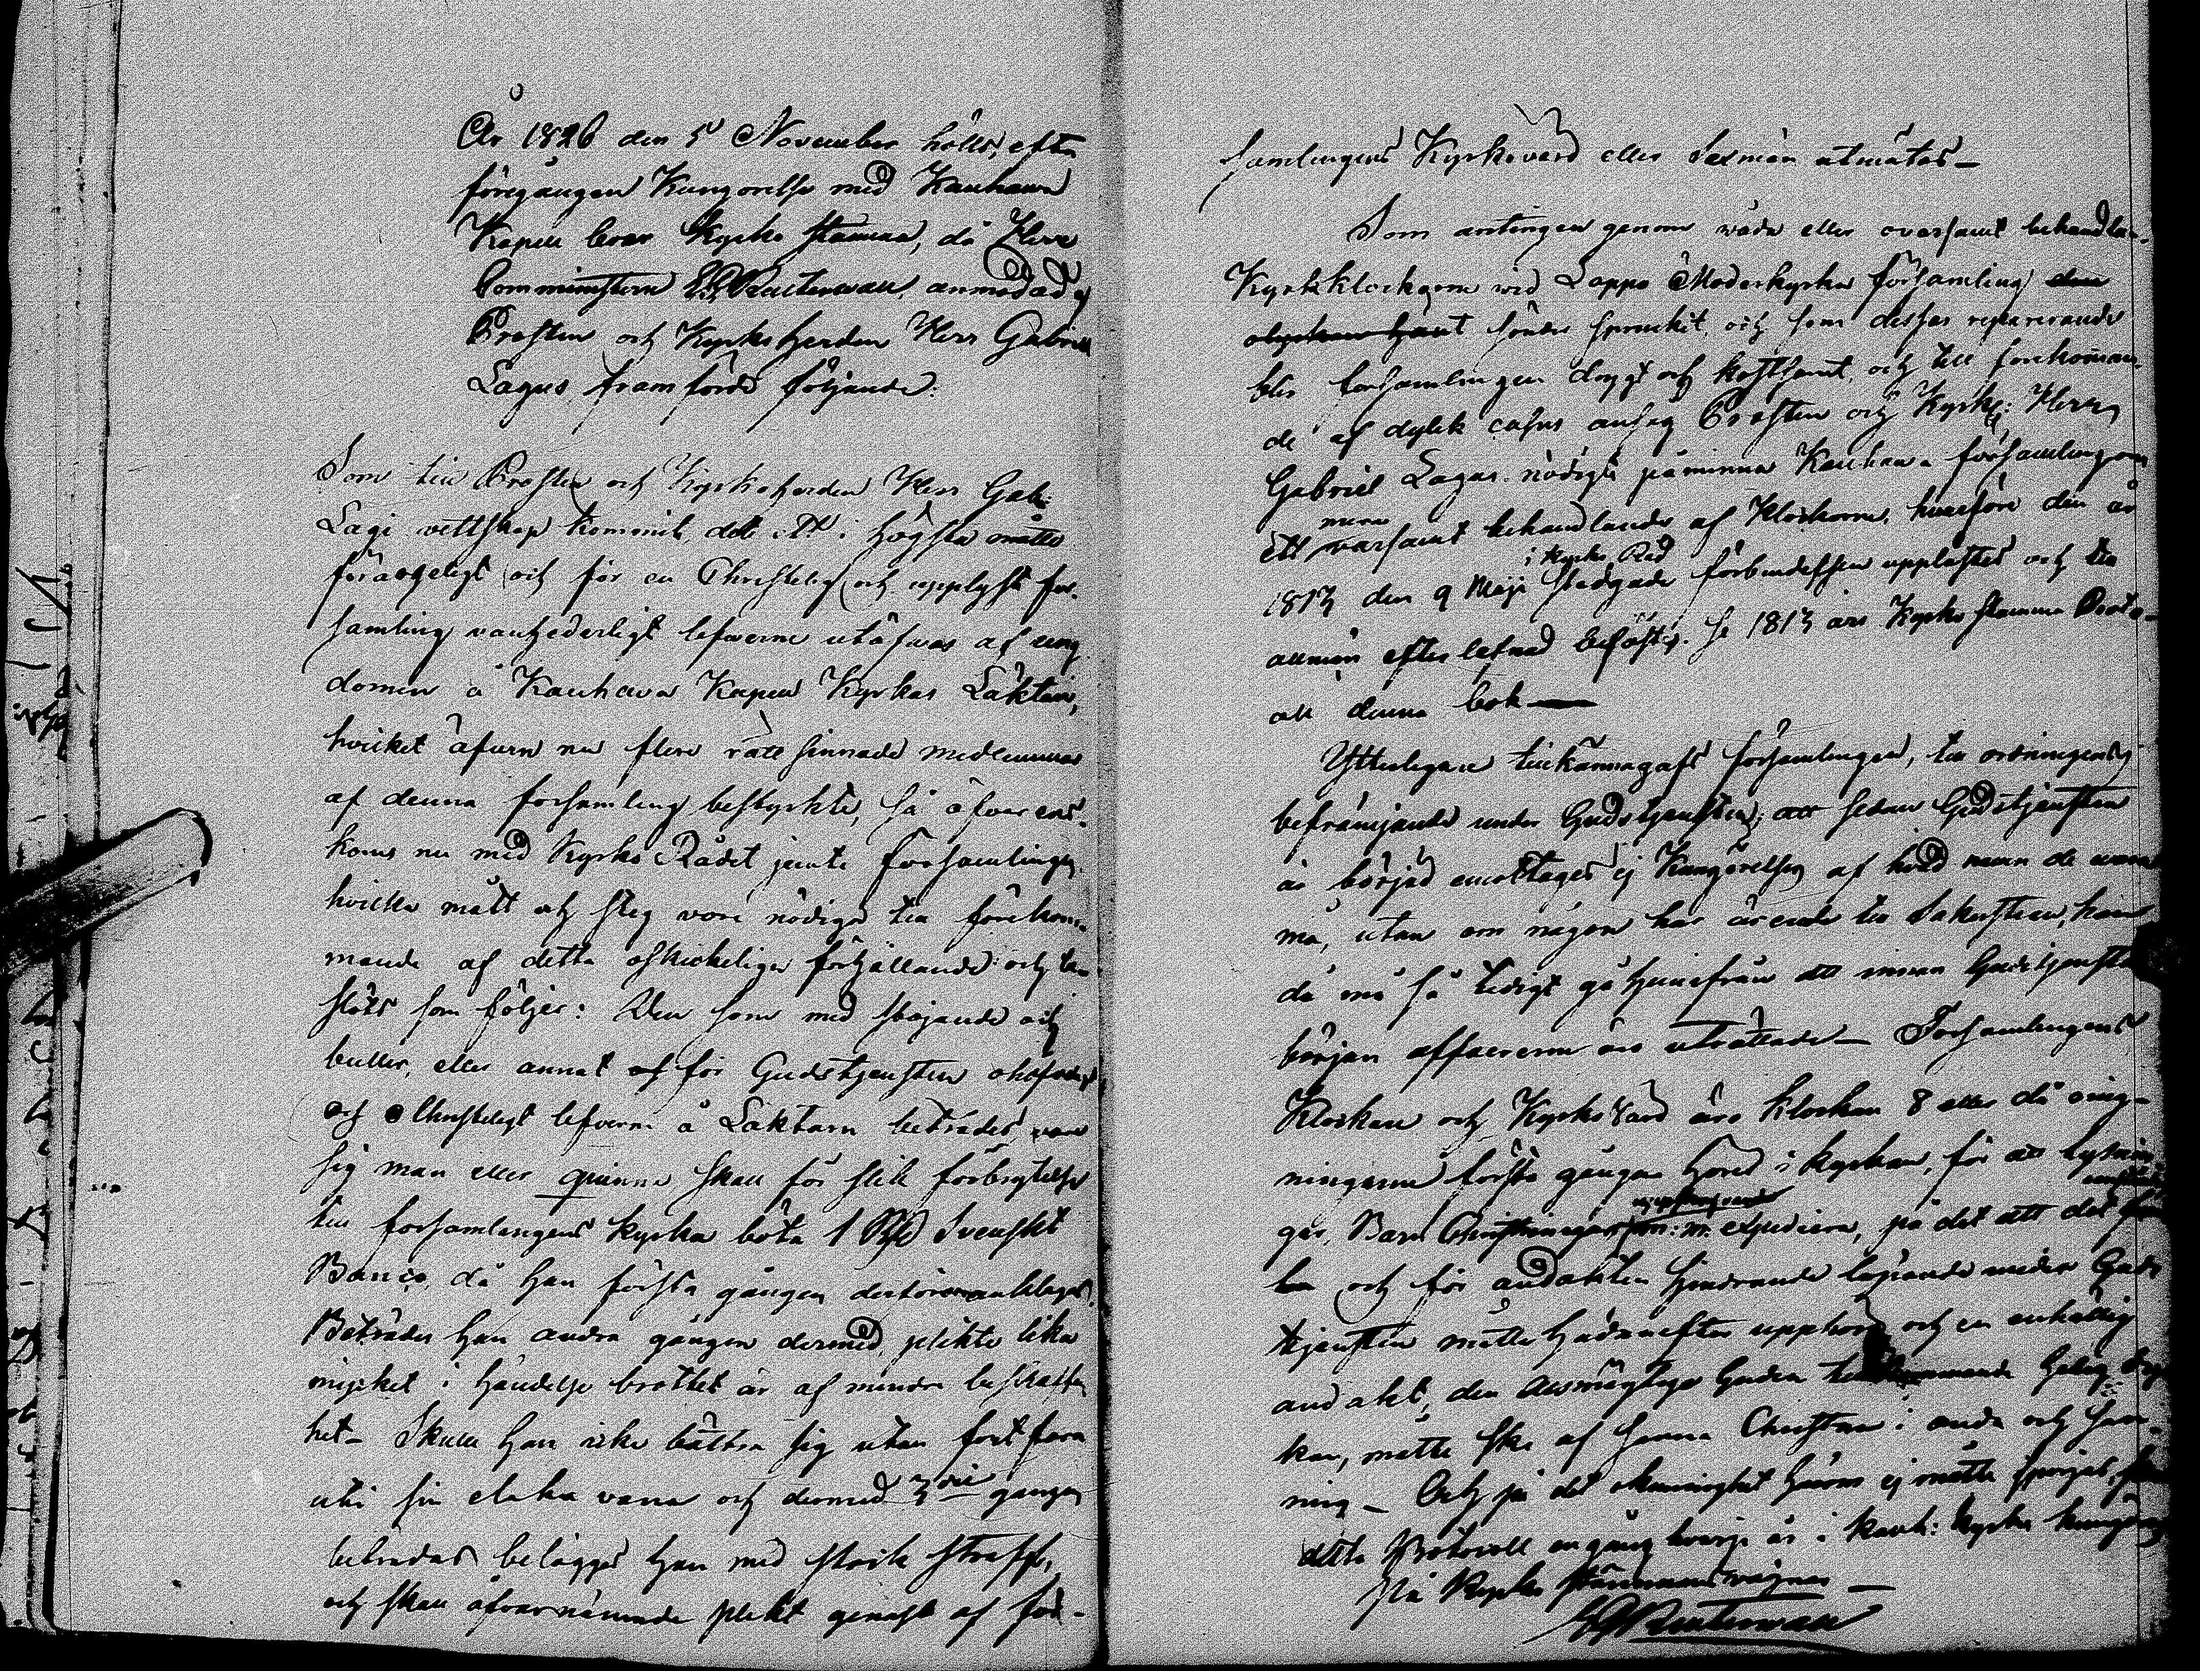 År 1826 den 5 November hölls, efter
föregången Kungörelse med Kauhava
Kapell boer Kyrko stämma, då Herr
Comministern Reuterwall, anmodad af
Prosten och Kyrkoherden Herr Gabriel
Lagus framförde följande:
Som till Prosten och Kyrkoherden Herr Gab:
Lagi vettskap kommit, det i högsta måtto
förargeligt och för en Christelig och upplyst för-
samling vanhederligt lefwerne utöfwas af ung
domen å Kauhava Kapell Kyrkas Läktare,
hvilket äfven nu flere rätt sinnade medlemmar
af denna församling bestyrkte, så öfverens-
koms nu med Kyrko Rådet jemte Församlingen
hvilka mått och steg vore nödiga till förekom-
mande af detta oskickeliga förhållande och be-
slöts som följer: Den som med stojande och
buller, eller annat af för Gudstjensten
och oChristeligt lefverne å Läktarn beträdes, vare
sig man eller qvinna skall för slik förbrytelse
till församlingens kyrka böta 1 Rd Svenskt
Banco, då han första gången derföre anklagas.
Beträdes han andra gången dermed, plikte lika
mycket i händelse brottet är af mindre beskaffen
het – Skulle han icke bättra sig utan fortfara
uti sin elaka vana och dermed 3die gången
beträdas belägges han med stock straff,
och skall ofvannämnde plikt genast af för-
samlingens Kyrkovärd eller Sexmän utmätas –
Som antingen genom våda eller ovarsamt behandlan-
Kyrkklockorne wid Lappo Moderkyrka församling den
olyckan händt sönder spruckit, och som dessas reparerande
blir församlingen drygt och kostsamt, och till förekomman-
de af dylik casus ansåg Prosten och Kyrkh: Herr
Gabriel Lagus nödigt påminna Kauhava församling om
ett mera varsamt behandlande af Klockorne, hvarföre den år
1813 den 9 Maji i Kyrko Råd stadgade förbindelsen upplästes och till
allmän efterlefnad befästes. Se 1813 års Kyrko stämma Proto-
all denna bok —
Ytterligare tillkännagafs församlingen, till ordningens
befrämjande under Gudstjensten, att sedan Gudstjensten
är börjad emottages ej Kungörelser af hvad namn de vara
må, utan om någon har ärende till Sakristian, han
då må så tidigt gå hemifrån att innan Gudstjenstens
början affairerne äro uträttade – Församlingens
Klockare och Kyrkovärd äro klockan 8 eller då ring-
ningarne första gången hörs i kyrkan, för att lysnin
gar, Barn Christningar m: m: expediera, på det att det
och för andakten hindrande löpande under Guds
tjensten måtte hädanefter upphöra och en enhällig
andakt, den Allsmägtige Guden tillkommande helig dyr
kan, måtte ske af sanna Christna i anda och san
ning – Och på det okunnighet härom ej måtte spörjas,
detta Protocoll en gång hvarje år i Kauh: kyrka kungöras
På Kyrko stämmans wägnar –
Reuterwall